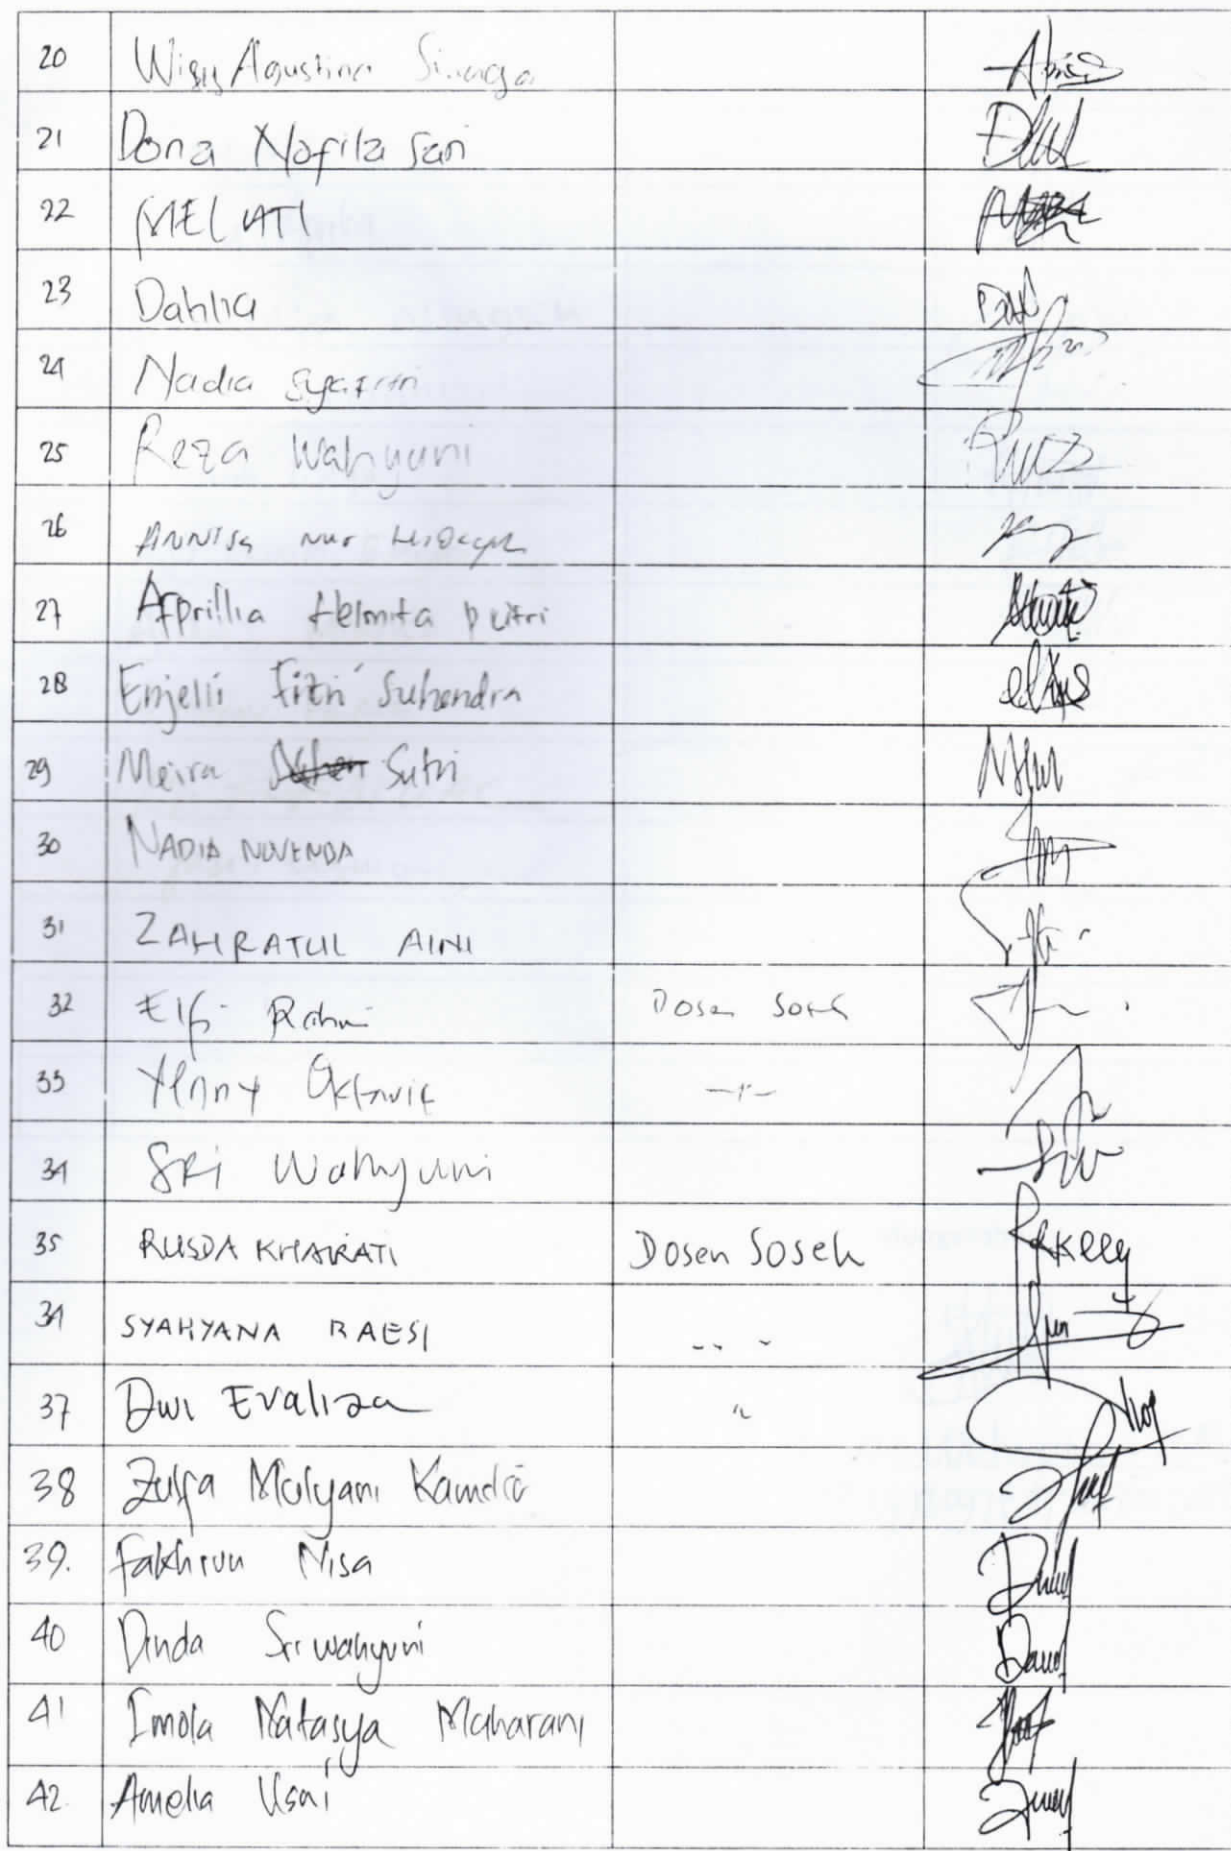 20 Agustina Sinaga
21 Dona Nofila Sari
22 MELATI
23 Dahlia
24 Nadia Syafitri
25 Reza Wahyuni
26 ANNISA Nur Hidayah
27 Aprillia Helmita putri
28 Enjelii Fitri Suhendra
29 Meira Sutri
30 NADIA NOVENDA
31 ZAHRATUL AINI
32 Elfi Rahmi Dosen Sosek
33 Yenny Oktavia -"-
34 SRI Wahyuni
35 RUSDA KHAIRATI Dosen Sosek
34 SYAHYANA RAESI
37 Dwi Evaliza "
38 Zulfa Mulyani
39. Fakhrun Nisa
40 Dinda Sri wahyuni
41 Imola Natasya Maharani
42. Amelia